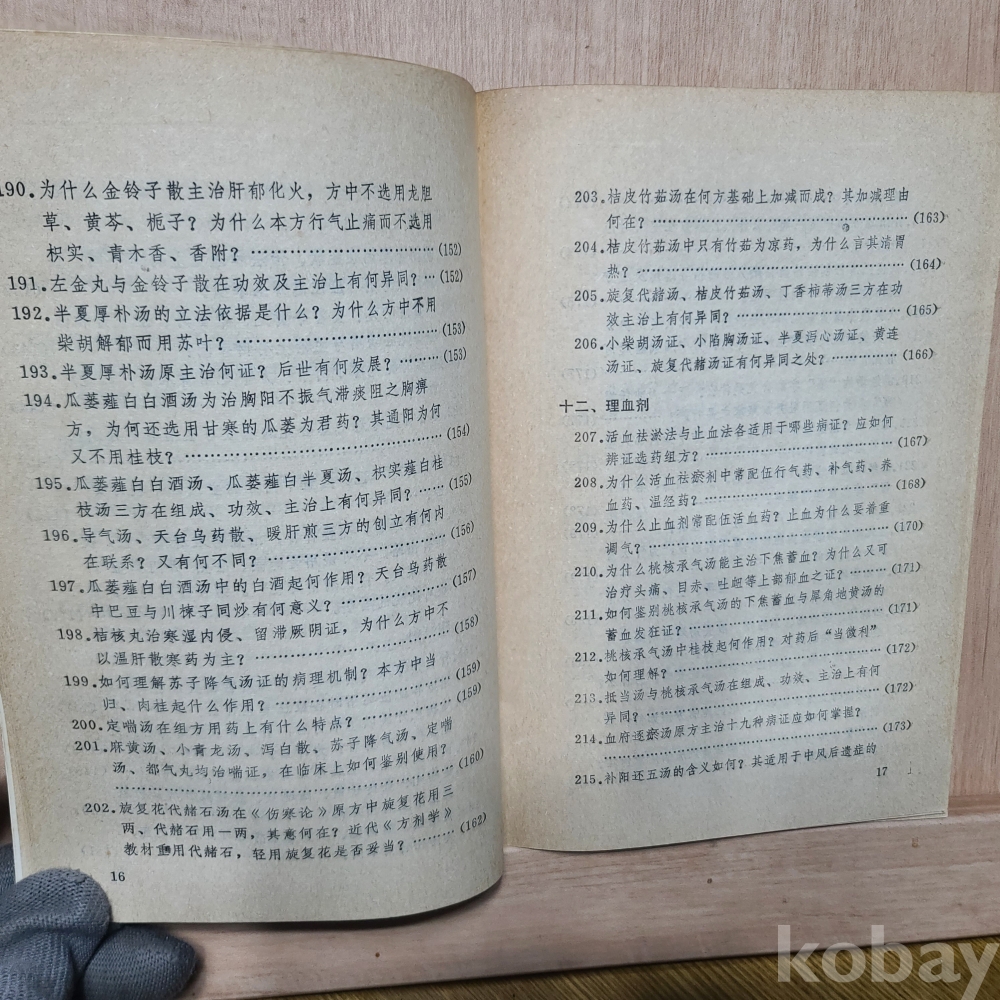 190.为什么金铃子散主治肝郁化火，方中不选用龙胆
草、黄芩、栀子？为什么本方行气止痛而不选用
枳实、青木香、香附？……………………(152)
191.左金丸与金铃子散在功效及主治上有何异同？…(152)
192.半夏厚朴汤的立法依据是什么？为什么方中不用
柴胡解郁而用苏叶？……………………(153)
193.半夏厚朴汤原主治何证？后世有何发展？………(153)
194.瓜蒌薤白白酒汤为治胸阳不振气滞痰阻之胸痹
方，为何还选用甘寒的瓜蒌为君药？其通阳为何
又不用桂枝？……………………………(154)
195.瓜蒌薤白白酒汤、瓜蒌薤白半夏汤、枳实薤白桂
枝汤三方在组成、功效、主治上有何异同？……(155)
196.导气汤、天台乌药散、暖肝煎三方的创立有何内
在联系？又有何不同？……………………(156)
197.瓜蒌薤白白酒汤中的白酒起何作用？天台乌药散
中巴豆与川楝子同炒有何意义？……………(157)
198.桔核丸治寒湿内侵、留滞厥阴证，为什么方中不
以温肝散寒药为主？……………………(158)
199.如何理解苏子降气汤证的病理机制？本方中当
归、肉桂起什么作用？……………………(159)
200.定喘汤在组方用药上有什么特点？……………(159)
201.麻黄汤、小青龙汤、泻白散、苏子降气汤、定喘
汤、都气丸均治喘证，在临床上如何鉴别使用？
……………………………………………(160)
202.旋复花代赭石汤在《伤寒论》原方中旋复花用三
两、代赭石用一两，其意何在？近代《方剂学》
教材重用代赭石，轻用旋复花是否妥当？………(162)
16
203.桔皮竹茹汤在何方基础上加减而成？其加减理由
何在？……………………………………(163)
204.桔皮竹茹汤中只有竹茹为凉药，为什么言其清胃
热？………………………………………(164)
205.旋复代赭汤、桔皮竹茹汤、丁香柿蒂汤三方在功
效主治上有何异同？……………………(165)
206.小柴胡汤证、小陷胸汤证、半夏泻心汤证、黄连
汤证、旋复代赭汤证有何异同之处？…………(166)
十二、理血剂
207.活血祛淤法与止血法各适用于哪些病证？应如何
辨证选药组方？……………………………(167)
208.为什么活血祛瘀剂中常配伍行气药、补气药、养
血药、温经药？……………………………(168)
209.为什么止血剂常配伍活血药？止血为什么要着重
调气？……………………………………(170)
210.为什么桃核承气汤能主治下焦蓄血？为什么又可
治疗头痛、目赤、吐衄等上部郁血之证？………(171)
211.如何鉴别桃核承气汤的下焦蓄血与犀角地黄汤的
蓄血发狂证？……………………………(171)
212.桃核承气汤中桂枝起何作用？对药后“当微利”
如何理解？………………………………(172)
213.抵当汤与桃核承气汤在组成、功效、主治上有何
异同？……………………………………(172)
214.血府逐瘀汤原方主治十九种病证应如何掌握？
……………………………………………(173)
215.补阳还五汤的含义如何？其适用于中风后遗症的
17
kobay